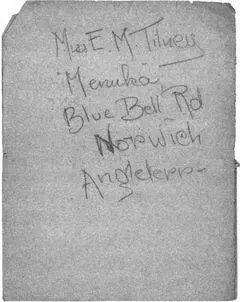 Miss E. M Tilney
"Menuka"
Blue Bell Rd
Norwich
Angleterr-